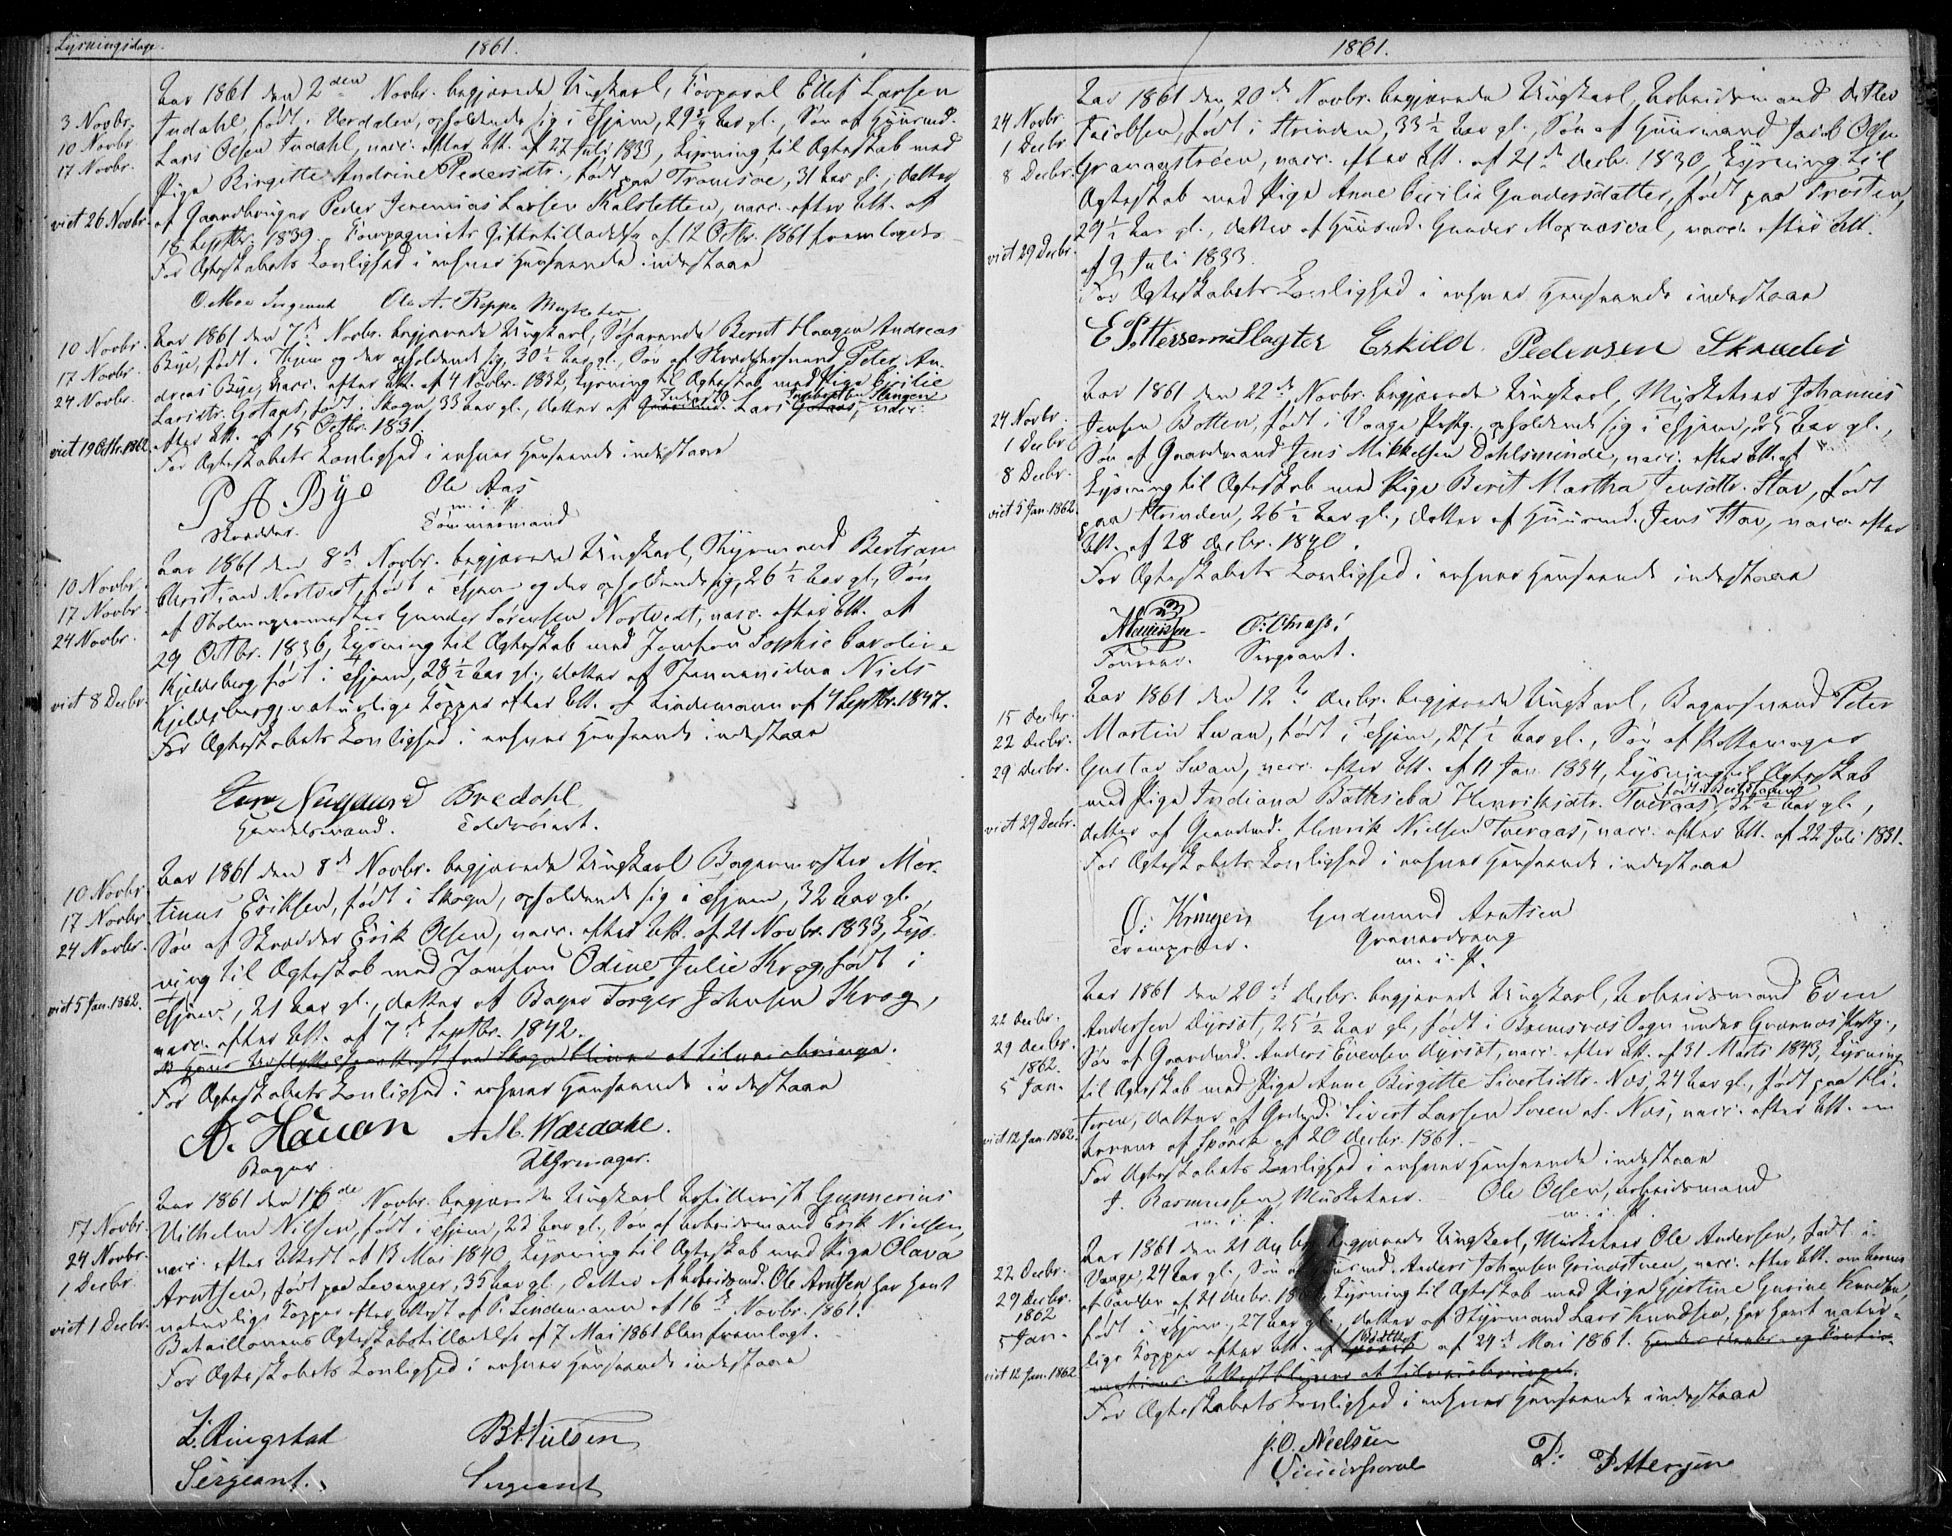 Lysningsdage.
1861.
Aar 1861 den 2den Novbr. begjærede Ungkarl, Corporal Ellef Larsen
3 Novbr.
Indahl, født i Værdalen, opholdende sig i Thjem, 29¼ Aar gl., Søn af Huusmd.
10 Novbr.
Lars Olsen Indahl, vacc. efter Att. af 27 Juli 1833, Lysning til Ægteskab med
17 Novbr.
Pige Birgitte Andrine Pedersdtr., født paa Tromsøe, 31 Aar gl., Datter
af Gaardbruger Peder Jeremias Larsen Kalsletten, vacc. efter Att. af
viet 26 Novbr.
18 Septbr. 1839. Compagniets Giftetilladelse af 12 Octbr. 1861 fremlagdes.
For Ægteskabets Lovlighed i enhver Henseende indestaae
O. Moe Sergeant Ole A. Reppe Musketer
Aar 1861 den 7de Novbr. begjærede Ungkarl, Søfarende Bernt Haagen Andreas
10 Novbr.
Bye, født i Thjem og der opholdende sig, 30½ Aar gl., Søn af Skræddersvend Peter An-
17 Novbr.
dreas Bye, vacc. efter Att. af 4 Novbr. 1832, Lysning til Ægteskab med Pige Cicilie
24 Novbr.
Larsdtr. Gotaas, født i Skogn, 33 Aar gl., Datter af Lars Gotaas, vacc.
efter Att. af 15 Octbr. 1831.
viet 19 Octbr. 1862
For Ægteskabets Lovlighed i enhver Henseende indestaae
P A Bye Ole Aas
m. i. P.
Skrædder. Tømmermand
Aar 1861 den 8de Novbr. begjærede Ungkarl, Styrmand Bertram
10 Novbr.
Christian Nortvedt, født i Thjem og der opholdende sig, 26½ Aar gl., Søn
17 Novbr.
af Stolemagermester Gunder Sørensen Nortvedt, vacc. efter Att. af
24 Novbr.
29 Octbr. 1836, Lysning til Ægteskab med Jomfru Sophie Caroline
Kjeldsberg, født i Thjem, 28½ Aar gl., Datter af Niels
viet 8 Decbr.
Kjeldsberg, naturlige Kopper efter Att. af Lindemann af 4 Septbr. 1847.
For Ægteskabets Lovlighed i enhver Henseende indestaae
Bredahl
Handelsmand. Toldrorist.
Aar 1861 den 8de Novbr. begjærede Ungkarl Bagermester Mar-
10 Novbr.
tinus Eriksen, født i Skogn, opholdende sig i Thjem, 32 Aar gl.,
17 Novbr.
Søn af Skrædder Erik Olsen, vacc. efter Att. af 21 Novbr. 1833, Lys-
24 Novbr.
ning til Ægteskab med Jomfru Odine Julie Krog, født i
viet 5 Jan. 1862.
Thjem, 21 Aar gl., Datter af Bager Torger Johnsen Krog,
vacc. efter Att. af 7de Septbr. 1842.
Skogn bliver at tilveiebringe.
For Ægteskabets Lovlighed i enhver Henseende indestaae
A. Hauan A. M. Wærdahl.
Bager. Uhrmager.
Aar 1861 den 16de Novbr. begjærede Ungkarl Artillerist Gunnerius
17 Novbr.
Vilhelm Nilsen, født i Thjem, 23 Aar gl., Søn af Arbeidsmand Erik Nielsen,
24 Novbr.
vacc. efter Attest af 13 Mai 1840, Lysning til Ægteskab med Pige Olava
1 Decbr.
Arntsen, født paa Levanger, 35 Aar gl., Datter af Arbeidsmd. Ole Arntsen, har havt
viet 1 Decbr.
naturlige Kopper efter Attest af P. Lindemann af 16de Novbr. 1861.
Bataillonens Ægteskabstilladelse af 7 Mai 1861 blev fremlagt.
For Ægteskabets Lovlighed i enhver Henseende indestaae
L. Ringstad B. Nilsen
Sergeant. Sergeant
1861.
Aar 1861 den 20de Novbr. begjærede Ungkarl, Arbeidsmand Detlev
24 Novbr.
Jacobsen, født i Strinden, 33½ Aar gl., Søn af Huusmand Jacob Olsen
1 Decbr.
Granaastrøen, vacc. efter Att. af 21de Decbr. 1830, Lysning til
8 Decbr.
Ægteskab med Pige Anne Cecilie Gundersdatter, født paa Frosten,
29½ Aar gl., Datter af Huusmd. Gunder Moxnæsval, vacc. efter Att.
viet 29 Decbr.
af 9 Juli 1833.
For Ægteskabets Lovlighed i enhver Henseende indestaae
E Pettersen Slagter Eskild Pedersen Skræder
Aar 1861 den 22de Novbr. begjærede Ungkarl, Musketeer Johannes
24 Novbr.
Jensen Botten, født i Vaage Prstg., opholdende sig i Thjem, 25 Aar gl.,
1 Decbr.
Søn af Gaardmand Jens Mikkelsen Dahlsminde, vacc. efter Att. af
8 Decbr.
Lysning til Ægteskab med Pige Berit Martha Jensdtr. Stav, født
viet 5 Jan. 1862.
paa Strinden, 26½ Aar gl., Datter af Huusmd. Jens Stav, vacc. efter
Att. af 28 Decbr. 1840.
For Ægteskabets Lovlighed i enhver Henseende indestaae
Foureer. Sergeant.
Aar 1861 den 12te Decbr. begjærede Ungkarl, Bagersvend Peter
15 Decbr.
Martin Swan, født i Thjem, 27½ Aar gl., Søn af Pottemager
22 Decbr.
Gustav Swan, vacc. efter Att. af 11 Jan. 1834, Lysning til Ægteskab
29 Decbr.
med Pige Indiana Bathseba Henriksdtr. Tveraas, 32½ Aar gl.,
viet 29 Decbr.
Datter af Gaardmd. Henrik Nielsen Tveraas, vacc. efter Att. af 22 Juli 1831.
For Ægteskabets Lovlighed i enhver Henseende indestaae
O: Kringen Gudmund Arntsen
Trompeter. Gaardsdreng
m. i. P.
Aar 1861 den 20de Decbr. begjærede Ungkarl, Arbeidsmand Even
22 Decbr.
Andersen Dyrset, 25½ Aar gl., født i Bremsnæs Sogn under Qvernæs Prstg.,
29 Decbr.
Søn af Gaardmd. Anders Evensen Dyrset, vacc. efter Att. af 31 Marts 1843, Lysning
1862.
5 Jan.
til Ægteskab med Pige Anne Birgitte Sivertsdtr. Næs, 24 Aar gl., født paa Hi-
teren, Datter af Gaardmd. Sivert Larsen Soven af Næs, vacc. efter Att. om
viet 12 Jan. 1862.
Navne af Spørck af 20 Decbr. 1861.
For Ægteskabets Lovlighed i enhver Henseende indestaae
J. Rasmussen, Musketeer. Ole Olsen, Arbeidsmand
m. i. P. m. i. P.
Aar 1861 den 21 Decbr. begjærede Ungkarl, Musketeer Ole Andersen, født i
22 Decbr.
Vaage, 24 Aar gl., Søn af Huusmd. Anders Johansen Grindstuen, vacc. efter Att.
29 Decbr.
af 21 Decbr. Lysning til Ægteskab med Pige Gjertine Gurine Knudsen,
1862
født i Thjem, 27 Aar gl., Datter af Styrmand Lars Knudsen, har havt natur-
5 Jan.
lige Kopper efter Att. af af 24de Mai 1861.
viet 12 Jan. 1862
Attest bliver at tilveiebringe.
For Ægteskabets Lovlighed i enhver Henseende indestaae
J. O. Neelsen P. Pettersen